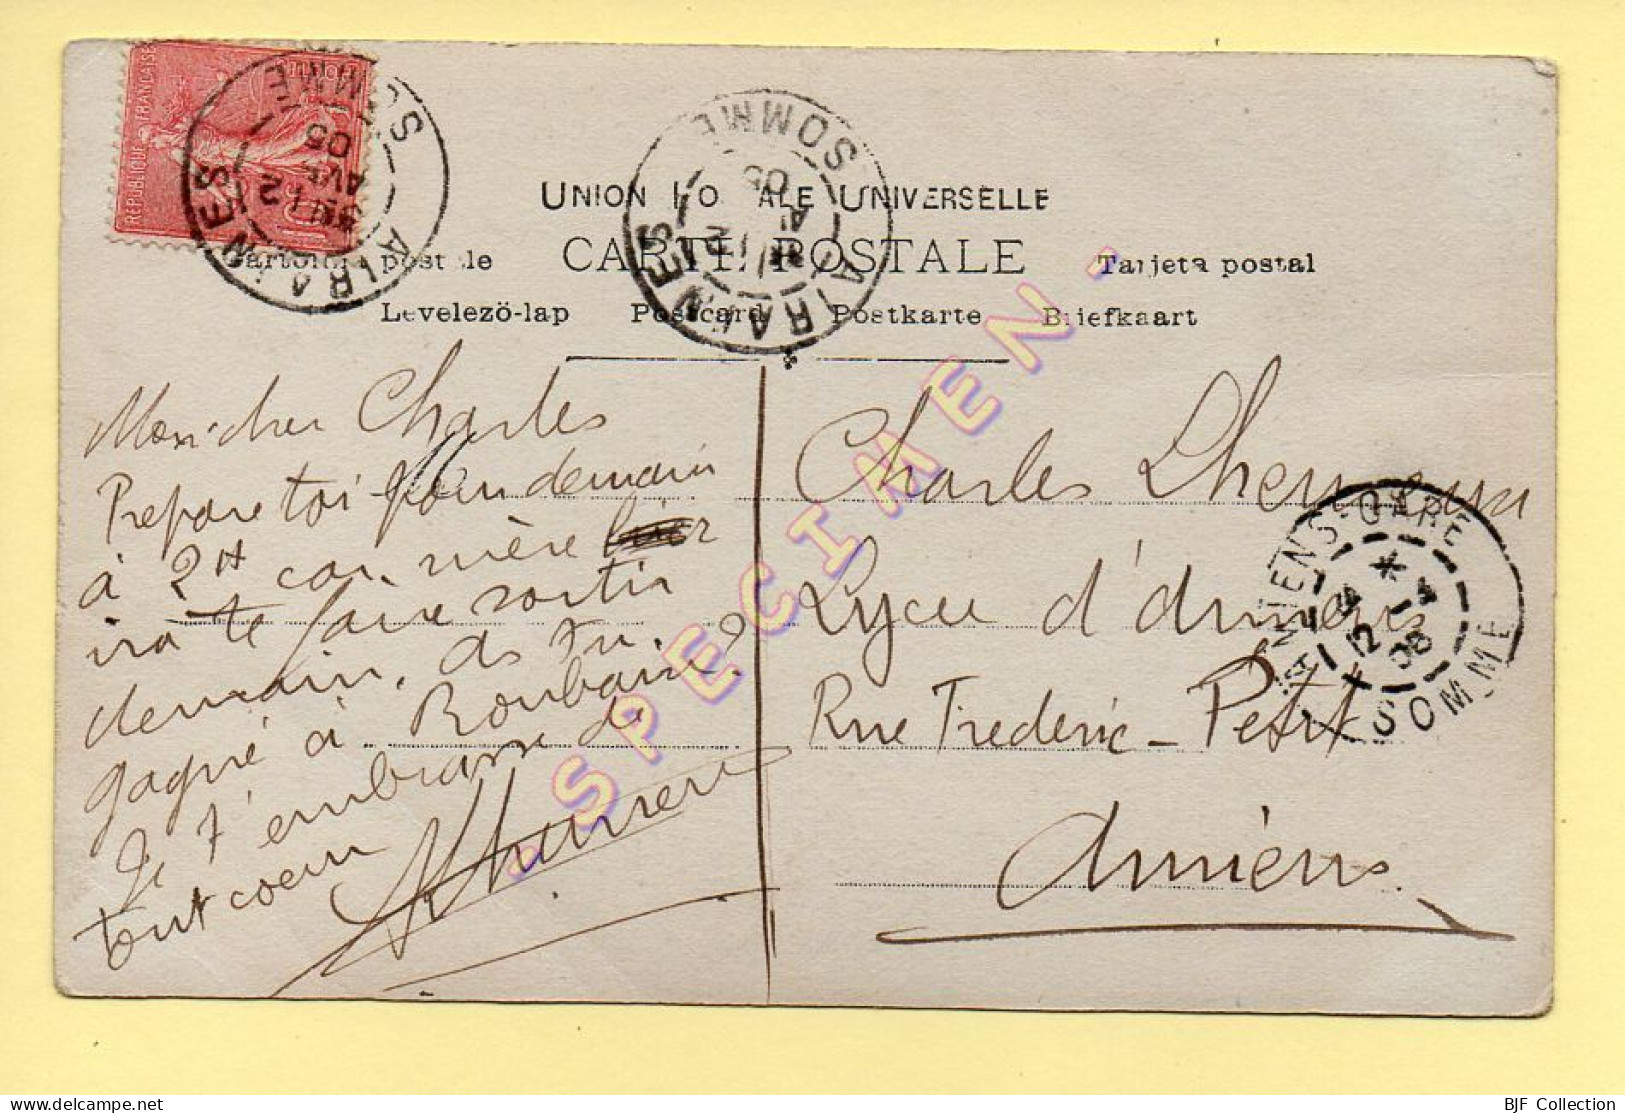 RÉPUBLIQUE FRANÇAISE
POSTES
10
AIRAINES
12
AVR
05
SOMME
AIRAINES
12
05
SOMME
UNION POSTALE UNIVERSELLE
CARTE POSTALE
Cartolina postale
Tarjeta postal
Levelezö-lap Postcard Postkarte Briefkaart
Mon cher Charles
Prepare toi pour demain
à 2H car mère
ira te faire sortir
demain. As tu
gagné à Roubaix?
Je t'embrasse de
tout coeur
Charles
Lycée d'Amiens
Rue Frederic-Petit
Amiens.
AMIENS-GARE
12
05
SOMME
- SPECIMEN -
BJF Collection
delcampe.net